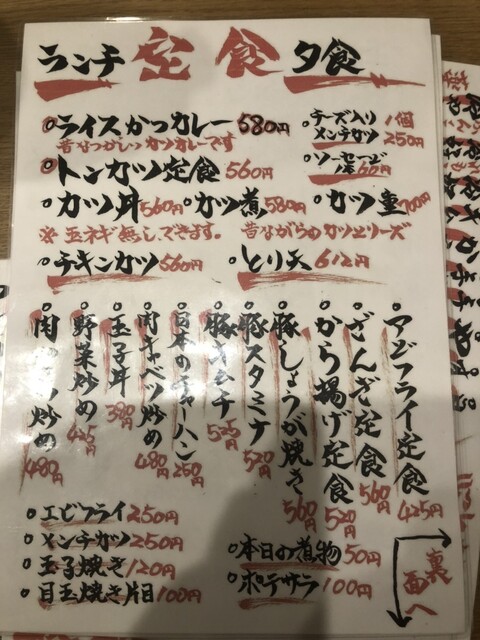 ランチ 定食 夕食
ライスかつカレー 580円
昔なつかしいカツカレーです
チーズ入り
メンチカツ
1個
250円
ソーセージ
トンカツ定食 560円
カツ丼 560円 カツ煮 580円 カツ重 700円
※玉ネギ無しできます。 昔ながらのカツシリーズ
チキンカツ 560円 とり天 612円
アジフライ定食 425円
ざんぎ定食 560円
から揚げ定食 520円
豚しょうが焼き 560円
豚スタミナ 520円
豚キムチ 525円
日本のチャーハン 250円
肉キャベツ炒め 480円
玉子丼 390円
野菜炒め 425円
炒め 480円
エビフライ 250円
メンチカツ 250円
玉子焼き 120円
目玉焼き片目 100円
本日の煮物 50円
ポテサラ 100円
裏面へ